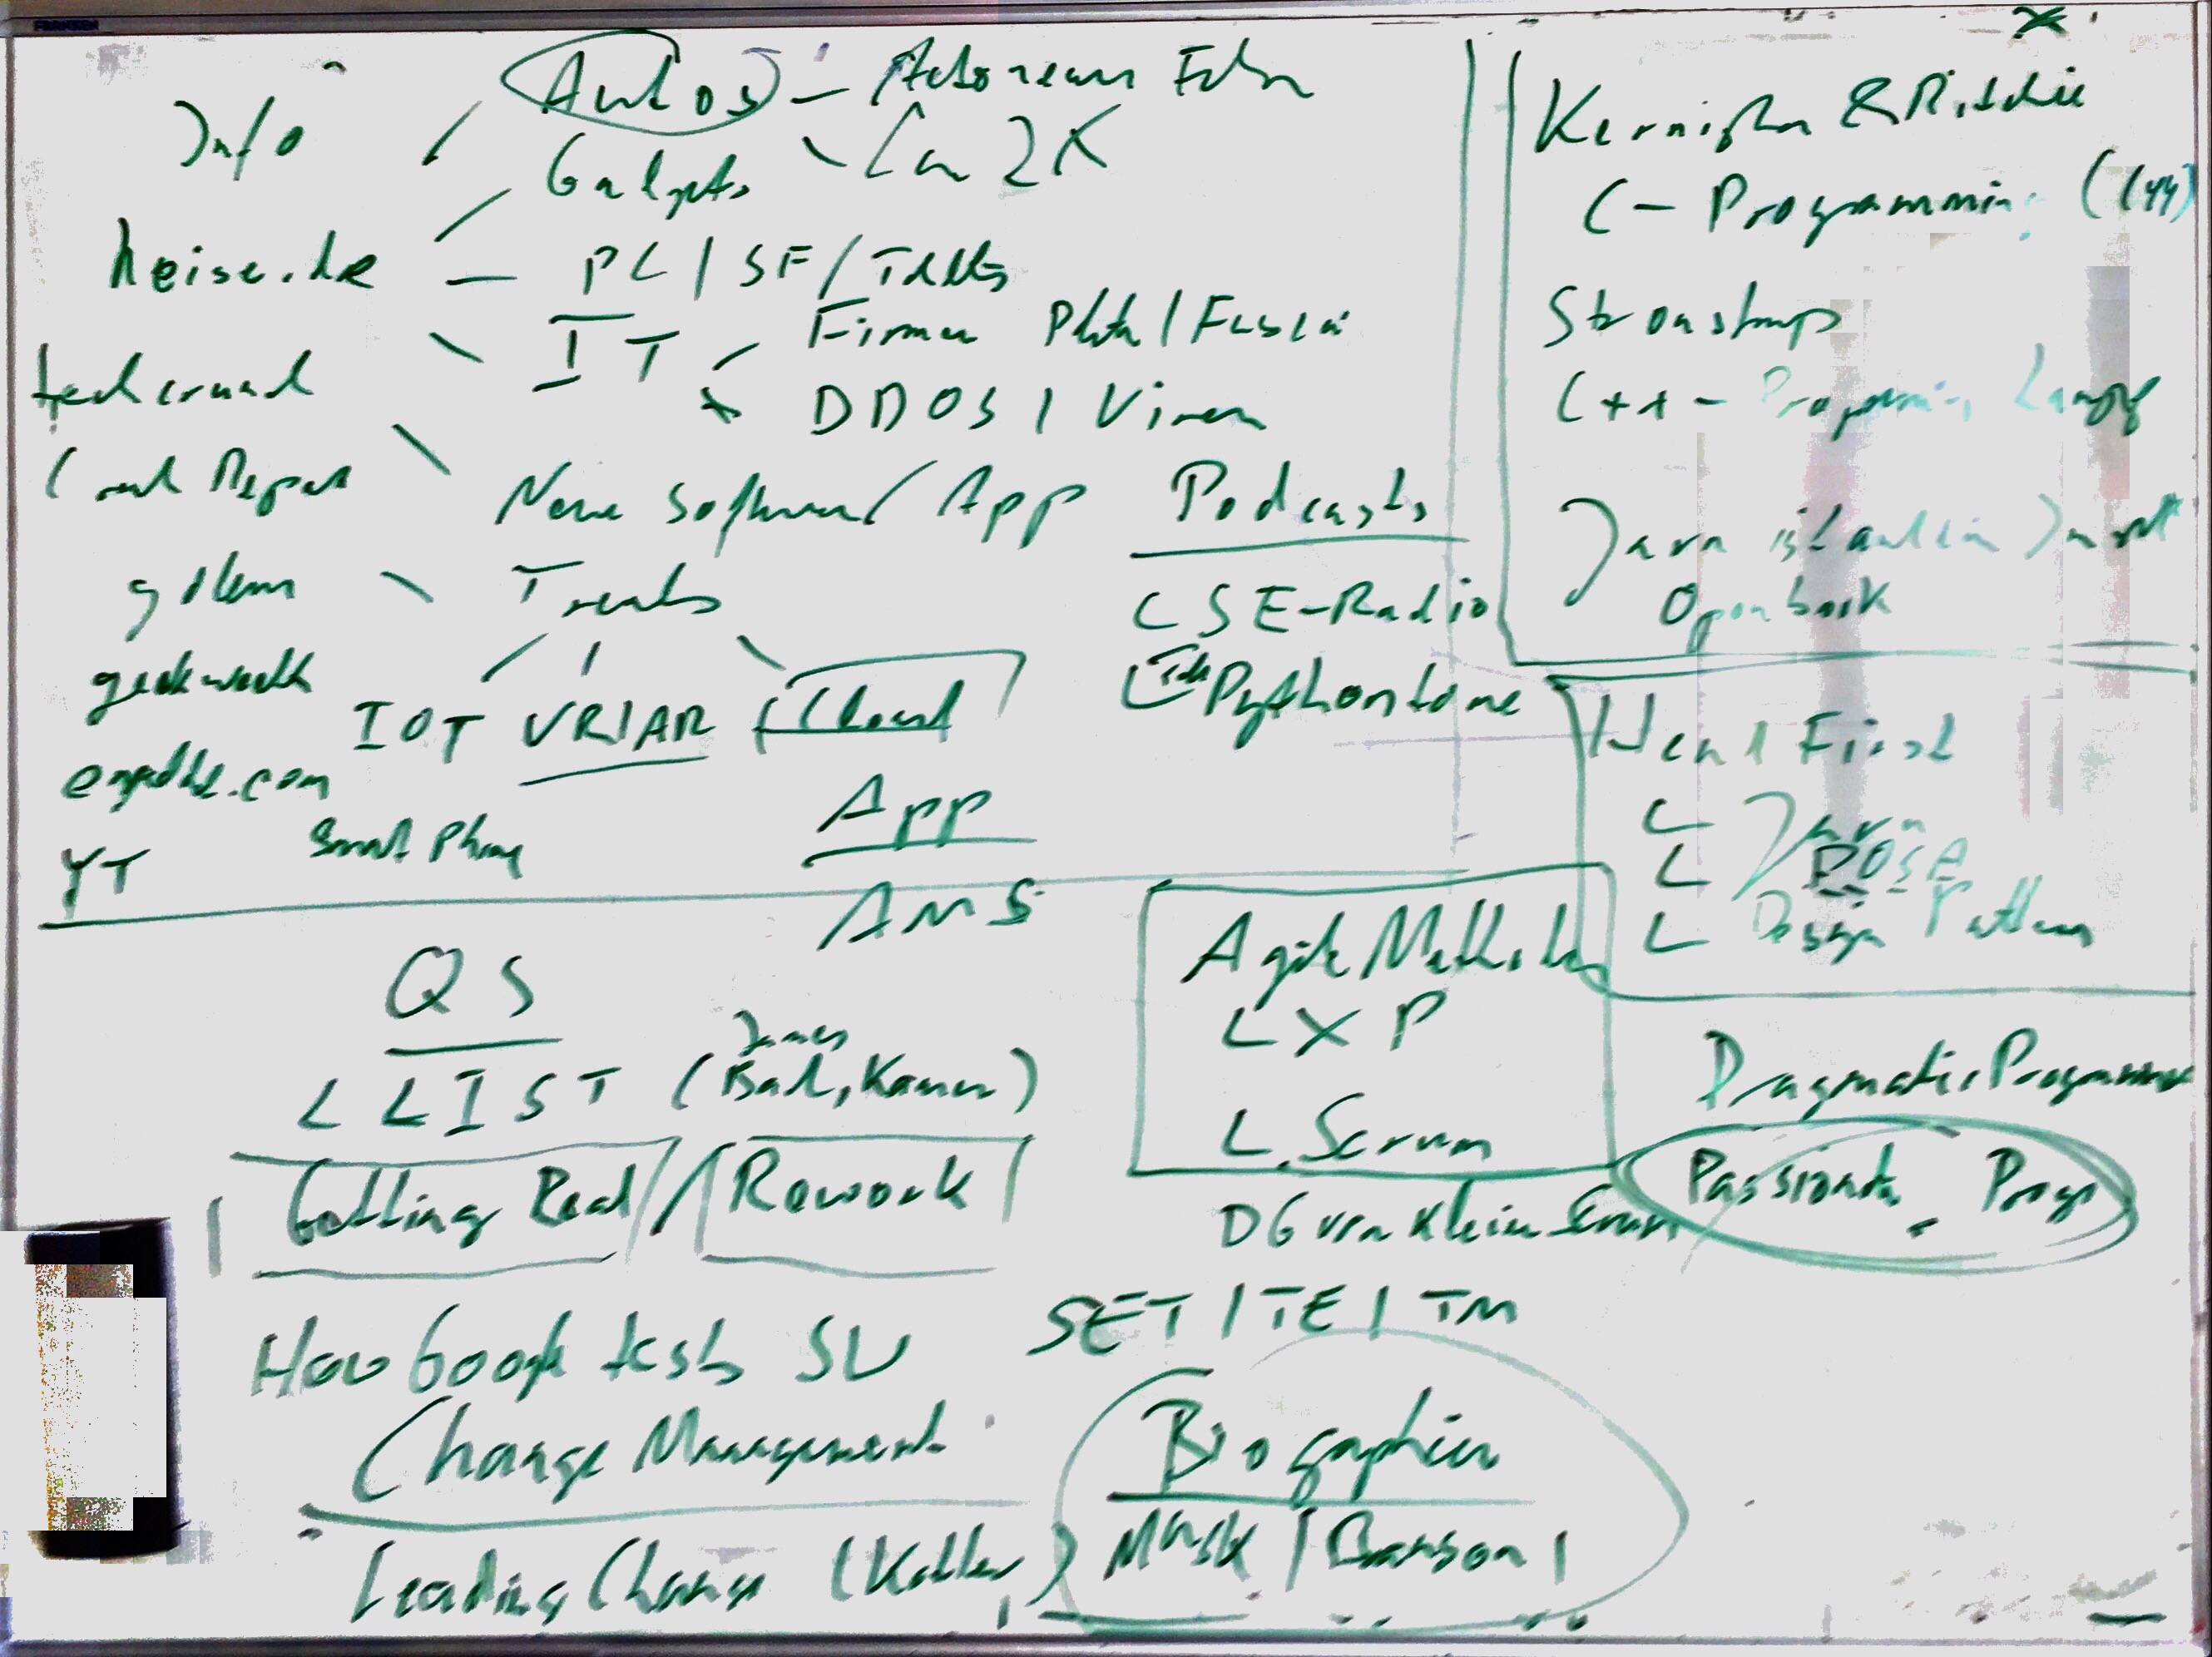 Info
Autos - Autonomes Fahren
Gadgets
Car2X
heise.de - PC / SF / Tablets
IT
Firmen Pleite / Fusion
DDOS / Viren
techcrunch
golem
Neue Software / App
Trends
geekweek
IOT VR/AR Cloud
engadget.com
YT
Smart Phone
App
AMS
Podcasts
SE-Radio
Pythontome
Kernighan & Ritchie
C-Programming
Stroustrup
C++ - Programming Language
Java ist auch eine Insel
Openbook
Head First
Java
Design Pattern
QS
LIST (James Bach, Kaner)
Getting Real / Rework
Agile Methoden
XP
Scrum
Pragmatic Programmer
Passionate Progr
How Google tests SW
SET / TE / TM
Change Management
Leading Change (Kotter)
Biographien
Musk / Branson /